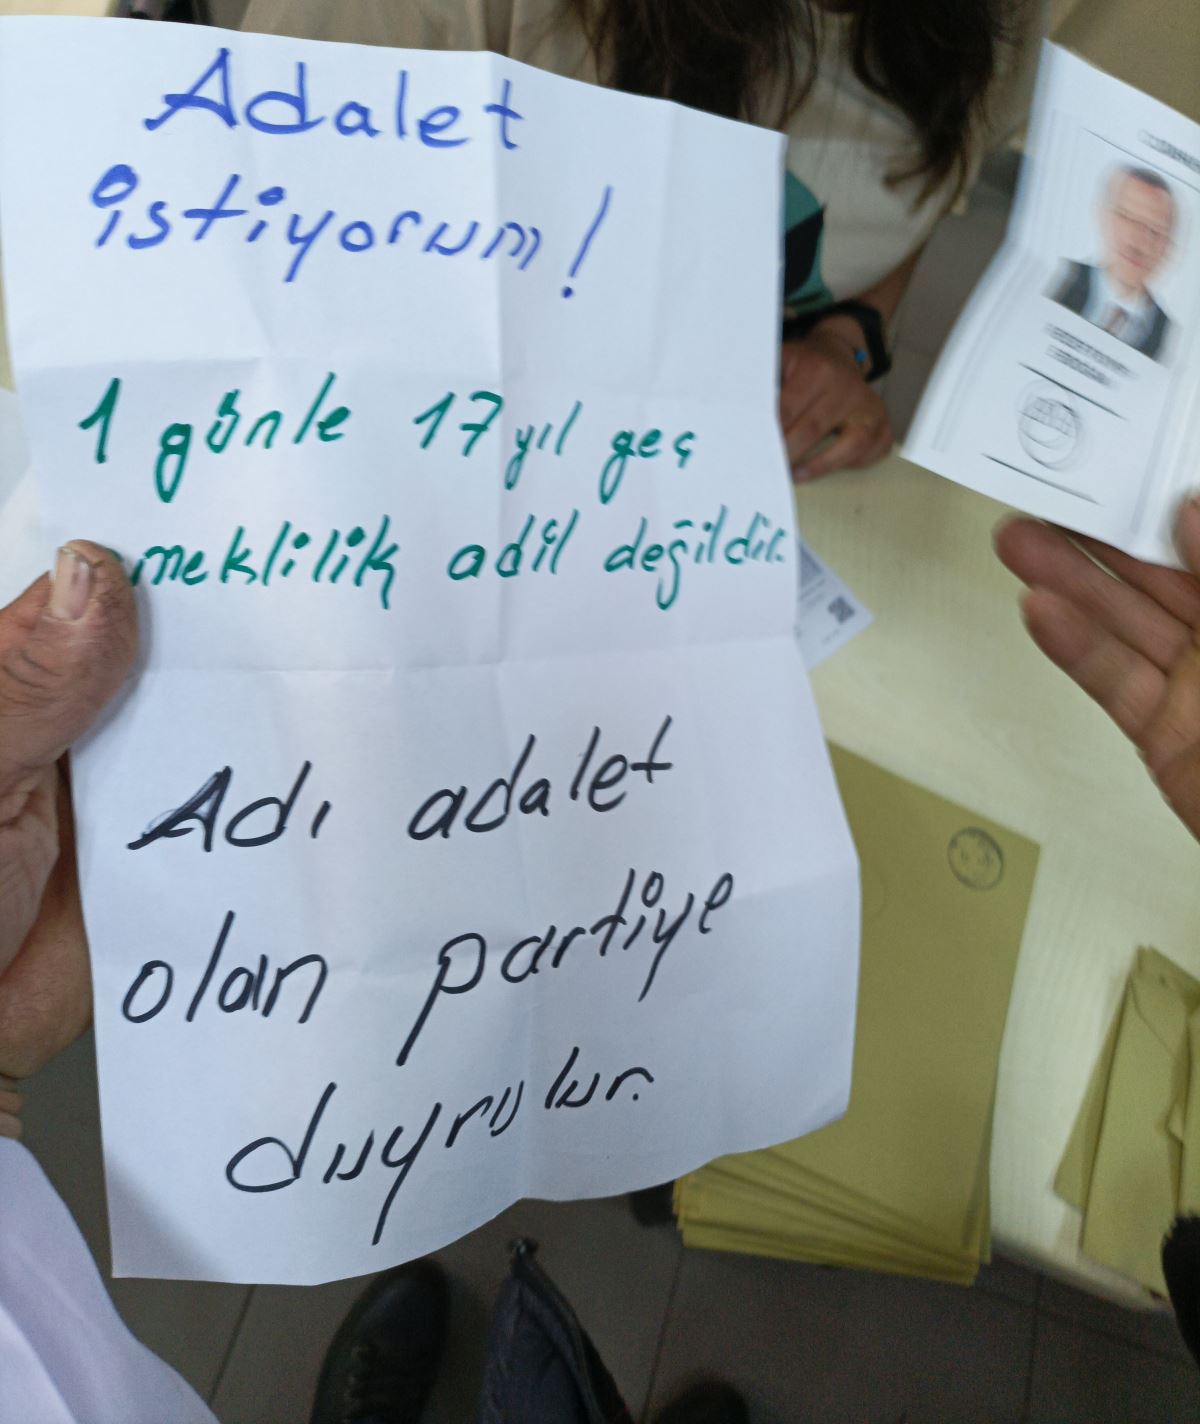 Adalet
istiyorum!
1 günle 17 yıl geç
emeklilik adil değildir.
Adı adalet
olan partiye
duyrulur.